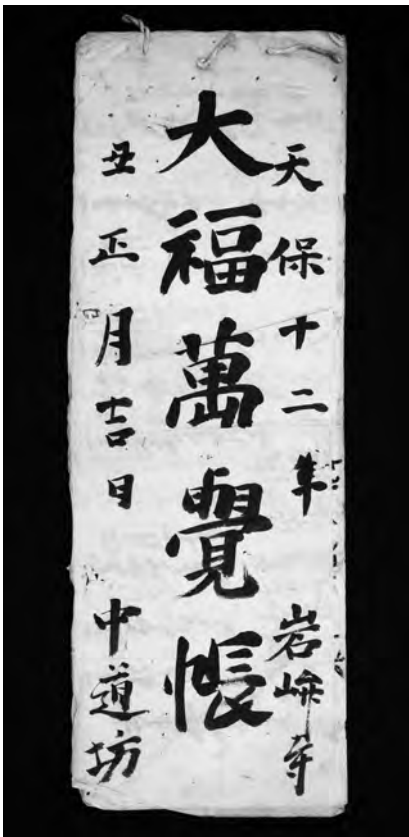 天保十二年 岩峅寺
大福萬覺帳
丑正月吉日 中道坊